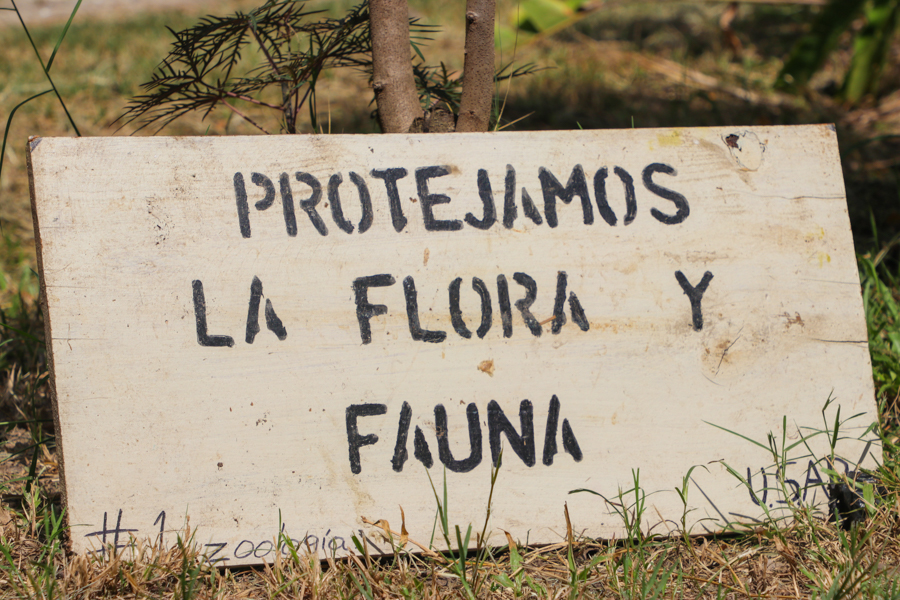 PROTEJAMOS
LA FLORA Y
FAUNA
#1 zoología